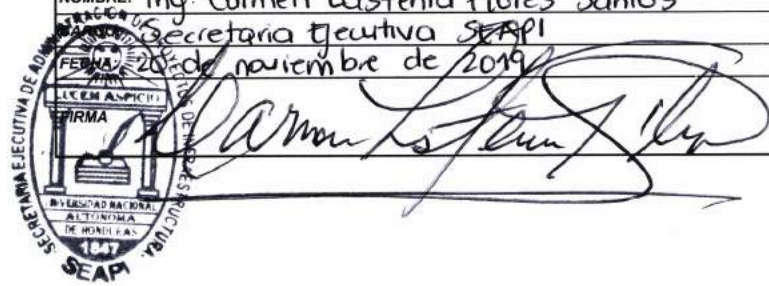 NOMBRE: Ing. Carmen Lastenia Flores Santos
CARGO: Secretaria Ejecutiva SEAPI
FECHA: 20 de noviembre de 2019
FIRMA
SECRETARIA EJECUTIVA DE ADMINISTRACION DE PROYECTOS DE INFRAESTRUCTURA.
LUCEM ASPICIO
UNIVERSIDAD NACIONAL
AUTONOMA
DE HONDURAS
1847
SEAPI